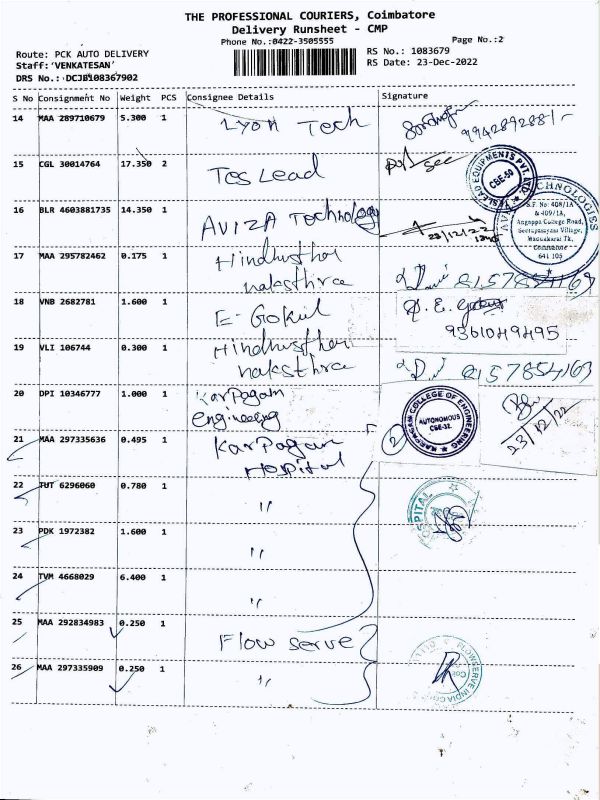 THE PROFESSIONAL COURIERS, Coimbatore
Delivery Runsheet - CMP
Phone No.:0422-3505555
Page No.:2
Route: PCK AUTO DELIVERY
RS No.: 1083679
Staff:'VENKATESAN'
RS Date: 23-Dec-2022
DRS No.: DCJB108367902
S No Consignment No Weight PCS Consignee Details Signature
14 MAA 289710679 5.300 1 Lyon Tech 9942892881/-
15 CGL 30014764 17.350 2 Tes Lead see
CBE-50
16 BLR 4603881735 14.350 1 AVIZA Technology 23/12/22
S.F. No: 408/1A
& 409/1A,
Angappa College Road,
Seerapalayam Village,
Madukarai Tk,
Coimbatore
641 105
17 MAA 295782462 0.175 1 Hindhusthan
naksthra 8157854163
18 VNB 2682781 1.600 1 E. Gokul
9361049495
19 VLI 106744 0.300 1 Hindhusthan
naksthra 8157854163
20 DPI 10346777 1.000 1 Karpagam
Engineering
KARPAGAM COLLEGE OF ENGINEERING
AUTONOMOUS
CBE-32.
23/12/22
21 MAA 297335636 0.495 1 Karpagam
Hospital
2
22 TUT 6296060 0.780 1 "
HOSPITAL
23 PDK 1972382 1.600 1 "
24 TVM 4668029 6.400 1 "
25 MAA 292834983 0.250 1 Flow serve
26 MAA 297335909 0.250 1 "
FLOWSERVE INDIA